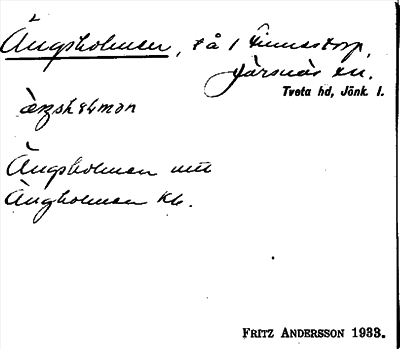 Ängsholmen, på 1 Finnestorp,
Järsnäs sn.
Tveta hd, Jönk. l.
äŋshɷlmən
Ängsholmen utt
Ängholmen Kb.
FRITZ ANDERSSON 1933.